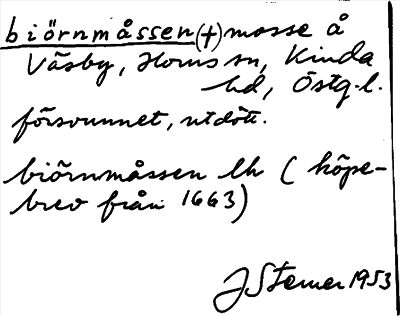 biörnmåssen (+) mosse å
Väsby, Horns sn, Kinda
hd, Östg.l.
försvunnet, utdött.
biörnmåssen lh (köpe-
brev från 1663)
J Sterner 1953